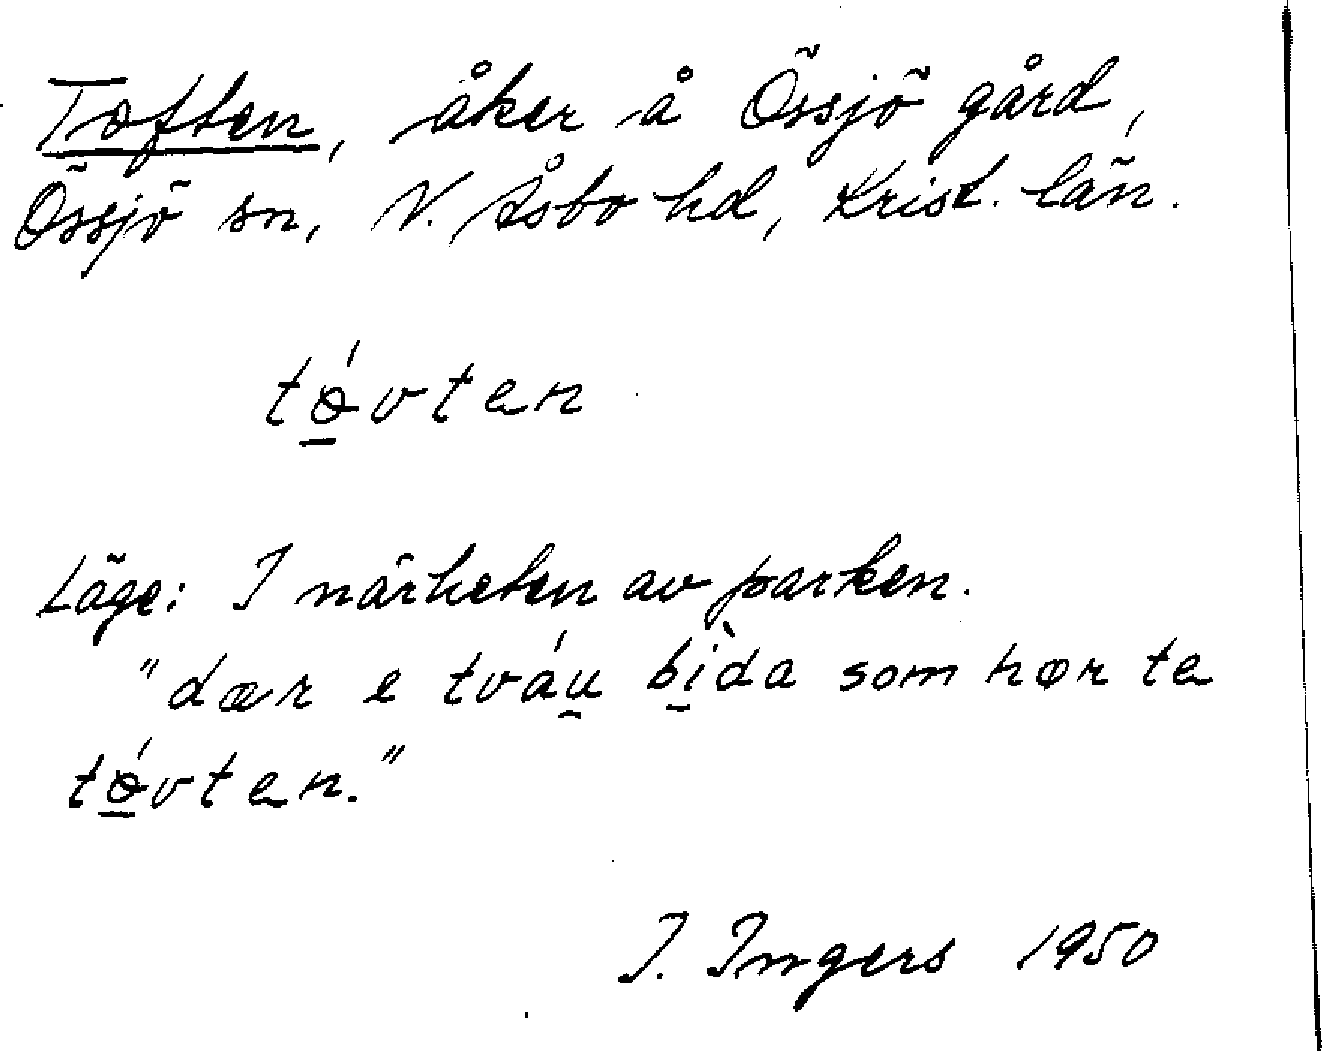 Toften, åker å Össjö gård,
Össjö sn, N. Åsbo hd, Krist. län.
tǿvten
Läge: I närheten av parken.
"dær e tváu bìda som hør te
tǿvten."
I. Ingers 1950